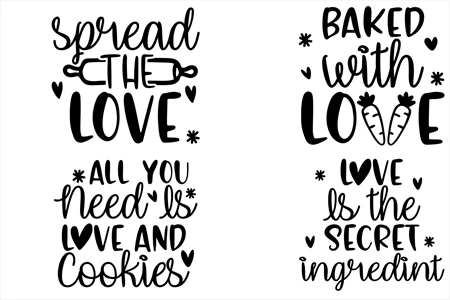 spread
THE
LOVE
BAKED
with
LOVE
ALL YOU
Need Is
LOVE AND
Cookies
LOVE
Is the
SECRET
ingredint